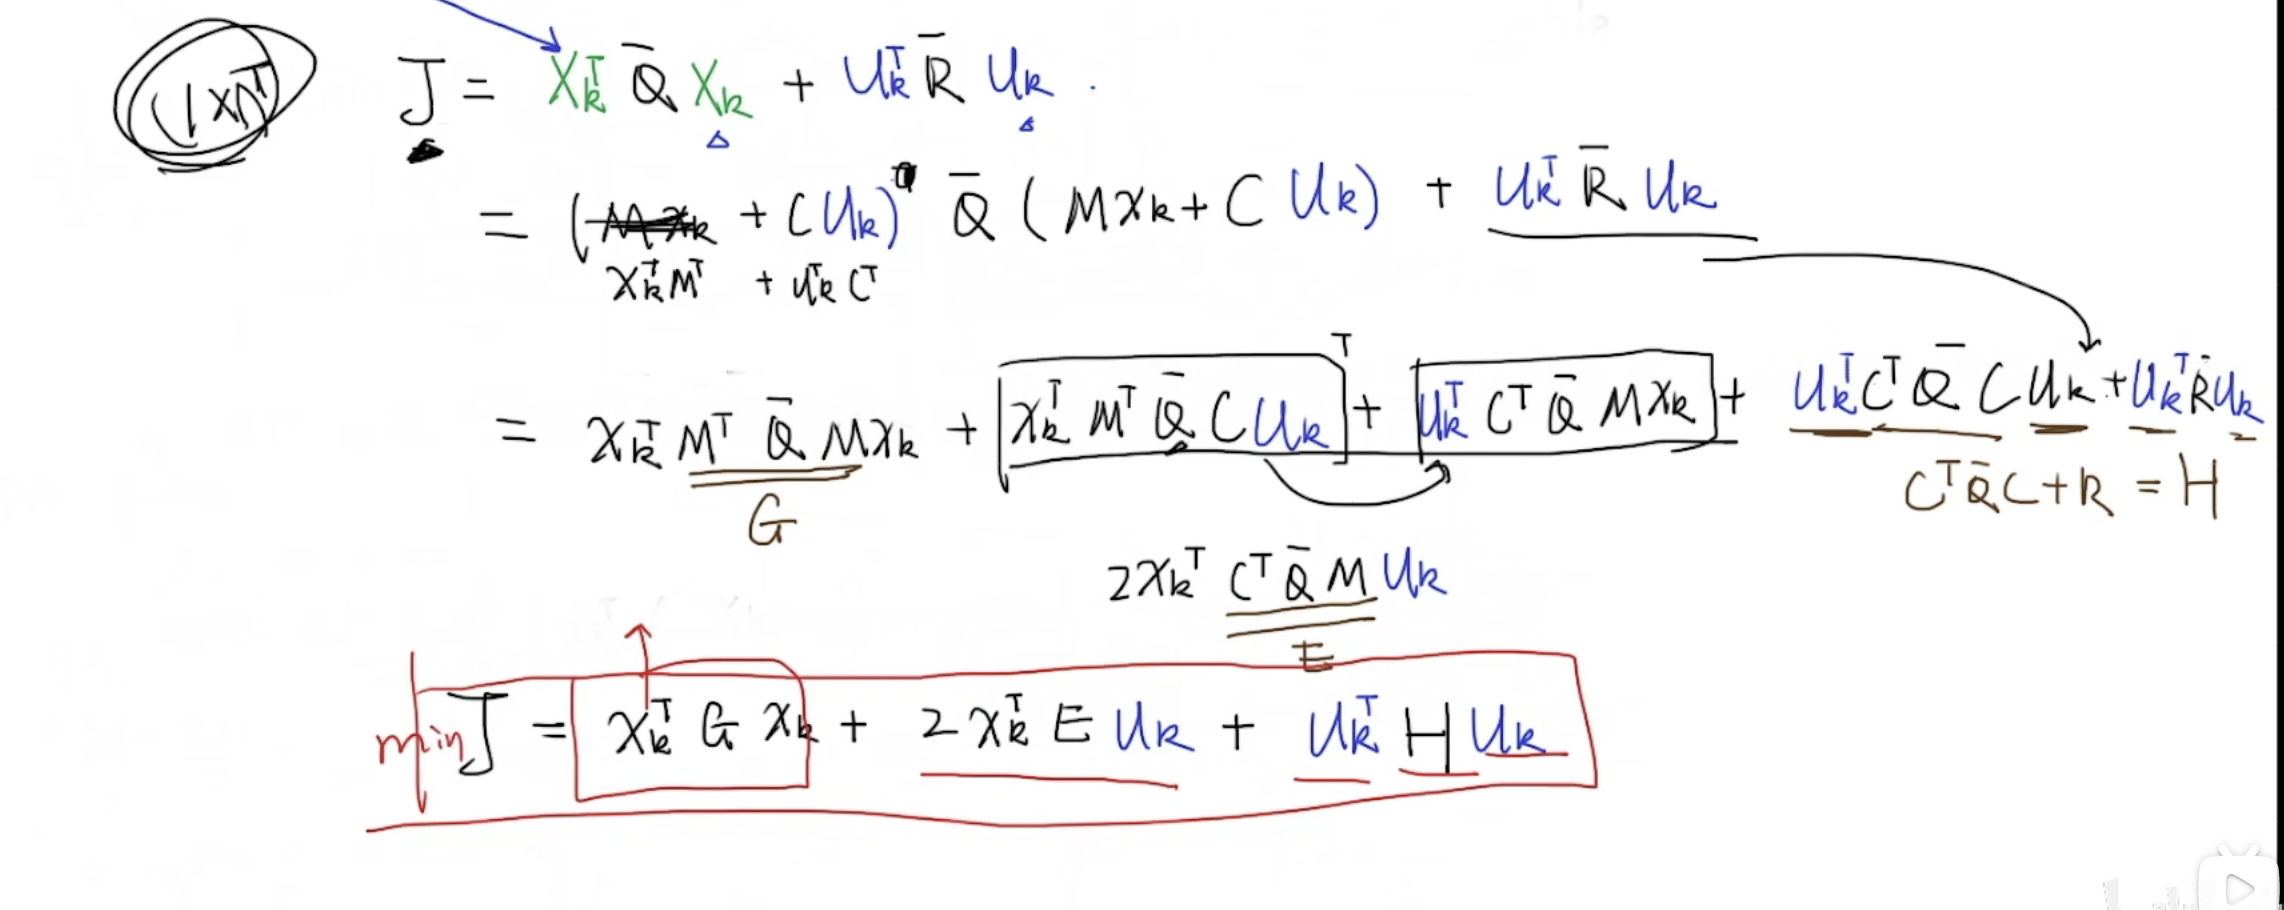 (1×1)
J = X_k^T Q̄ X_k + U_k^T R̄ U_k .
= (M x_k + C U_k)^T Q̄ (M x_k + C U_k) + U_k^T R̄ U_k
x_k^T M^T + U_k^T C^T
= x_k^T M^T Q̄ M x_k + [x_k^T M^T Q̄ C U_k]^T + [U_k^T C^T Q̄ M x_k] + U_k^T C^T Q̄ C U_k + U_k^T R̄ U_k
G
C^T Q̄ C + R = H
2 x_k^T C^T Q̄ M U_k
E
min J = x_k^T G x_k + 2 x_k^T E U_k + U_k^T H U_k